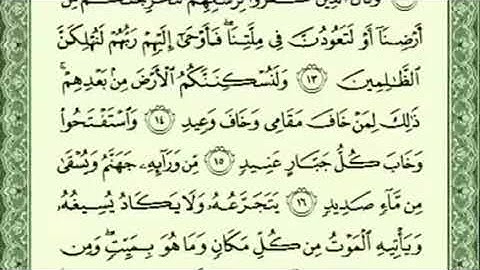 وَقَالَ ٱلَّذِينَ كَفَرُوا۟ لِرُسُلِهِمْ لَنُخْرِجَنَّكُم مِّنْ
أَرْضِنَآ أَوْ لَتَعُودُنَّ فِى مِلَّتِنَا ۖ فَأَوْحَىٰٓ إِلَيْهِمْ رَبُّهُمْ لَنُهْلِكَنَّ
ٱلظَّـٰلِمِينَ ١٣ وَلَنُسْكِنَنَّكُمُ ٱلْأَرْضَ مِنۢ بَعْدِهِمْ ۚ
ذَٰلِكَ لِمَنْ خَافَ مَقَامِى وَخَافَ وَعِيدِ ١٤ وَٱسْتَفْتَحُوا۟
وَخَابَ كُلُّ جَبَّارٍ عَنِيدٍ ١٥ مِّن وَرَآئِهِۦ جَهَنَّمُ وَيُسْقَىٰ
مِن مَّآءٍ صَدِيدٍ ١٦ يَتَجَرَّعُهُۥ وَلَا يَكَادُ يُسِيغُهُۥ
وَيَأْتِيهِ ٱلْمَوْتُ مِن كُلِّ مَكَانٍ وَمَا هُوَ بِمَيِّتٍ ۖ وَمِن